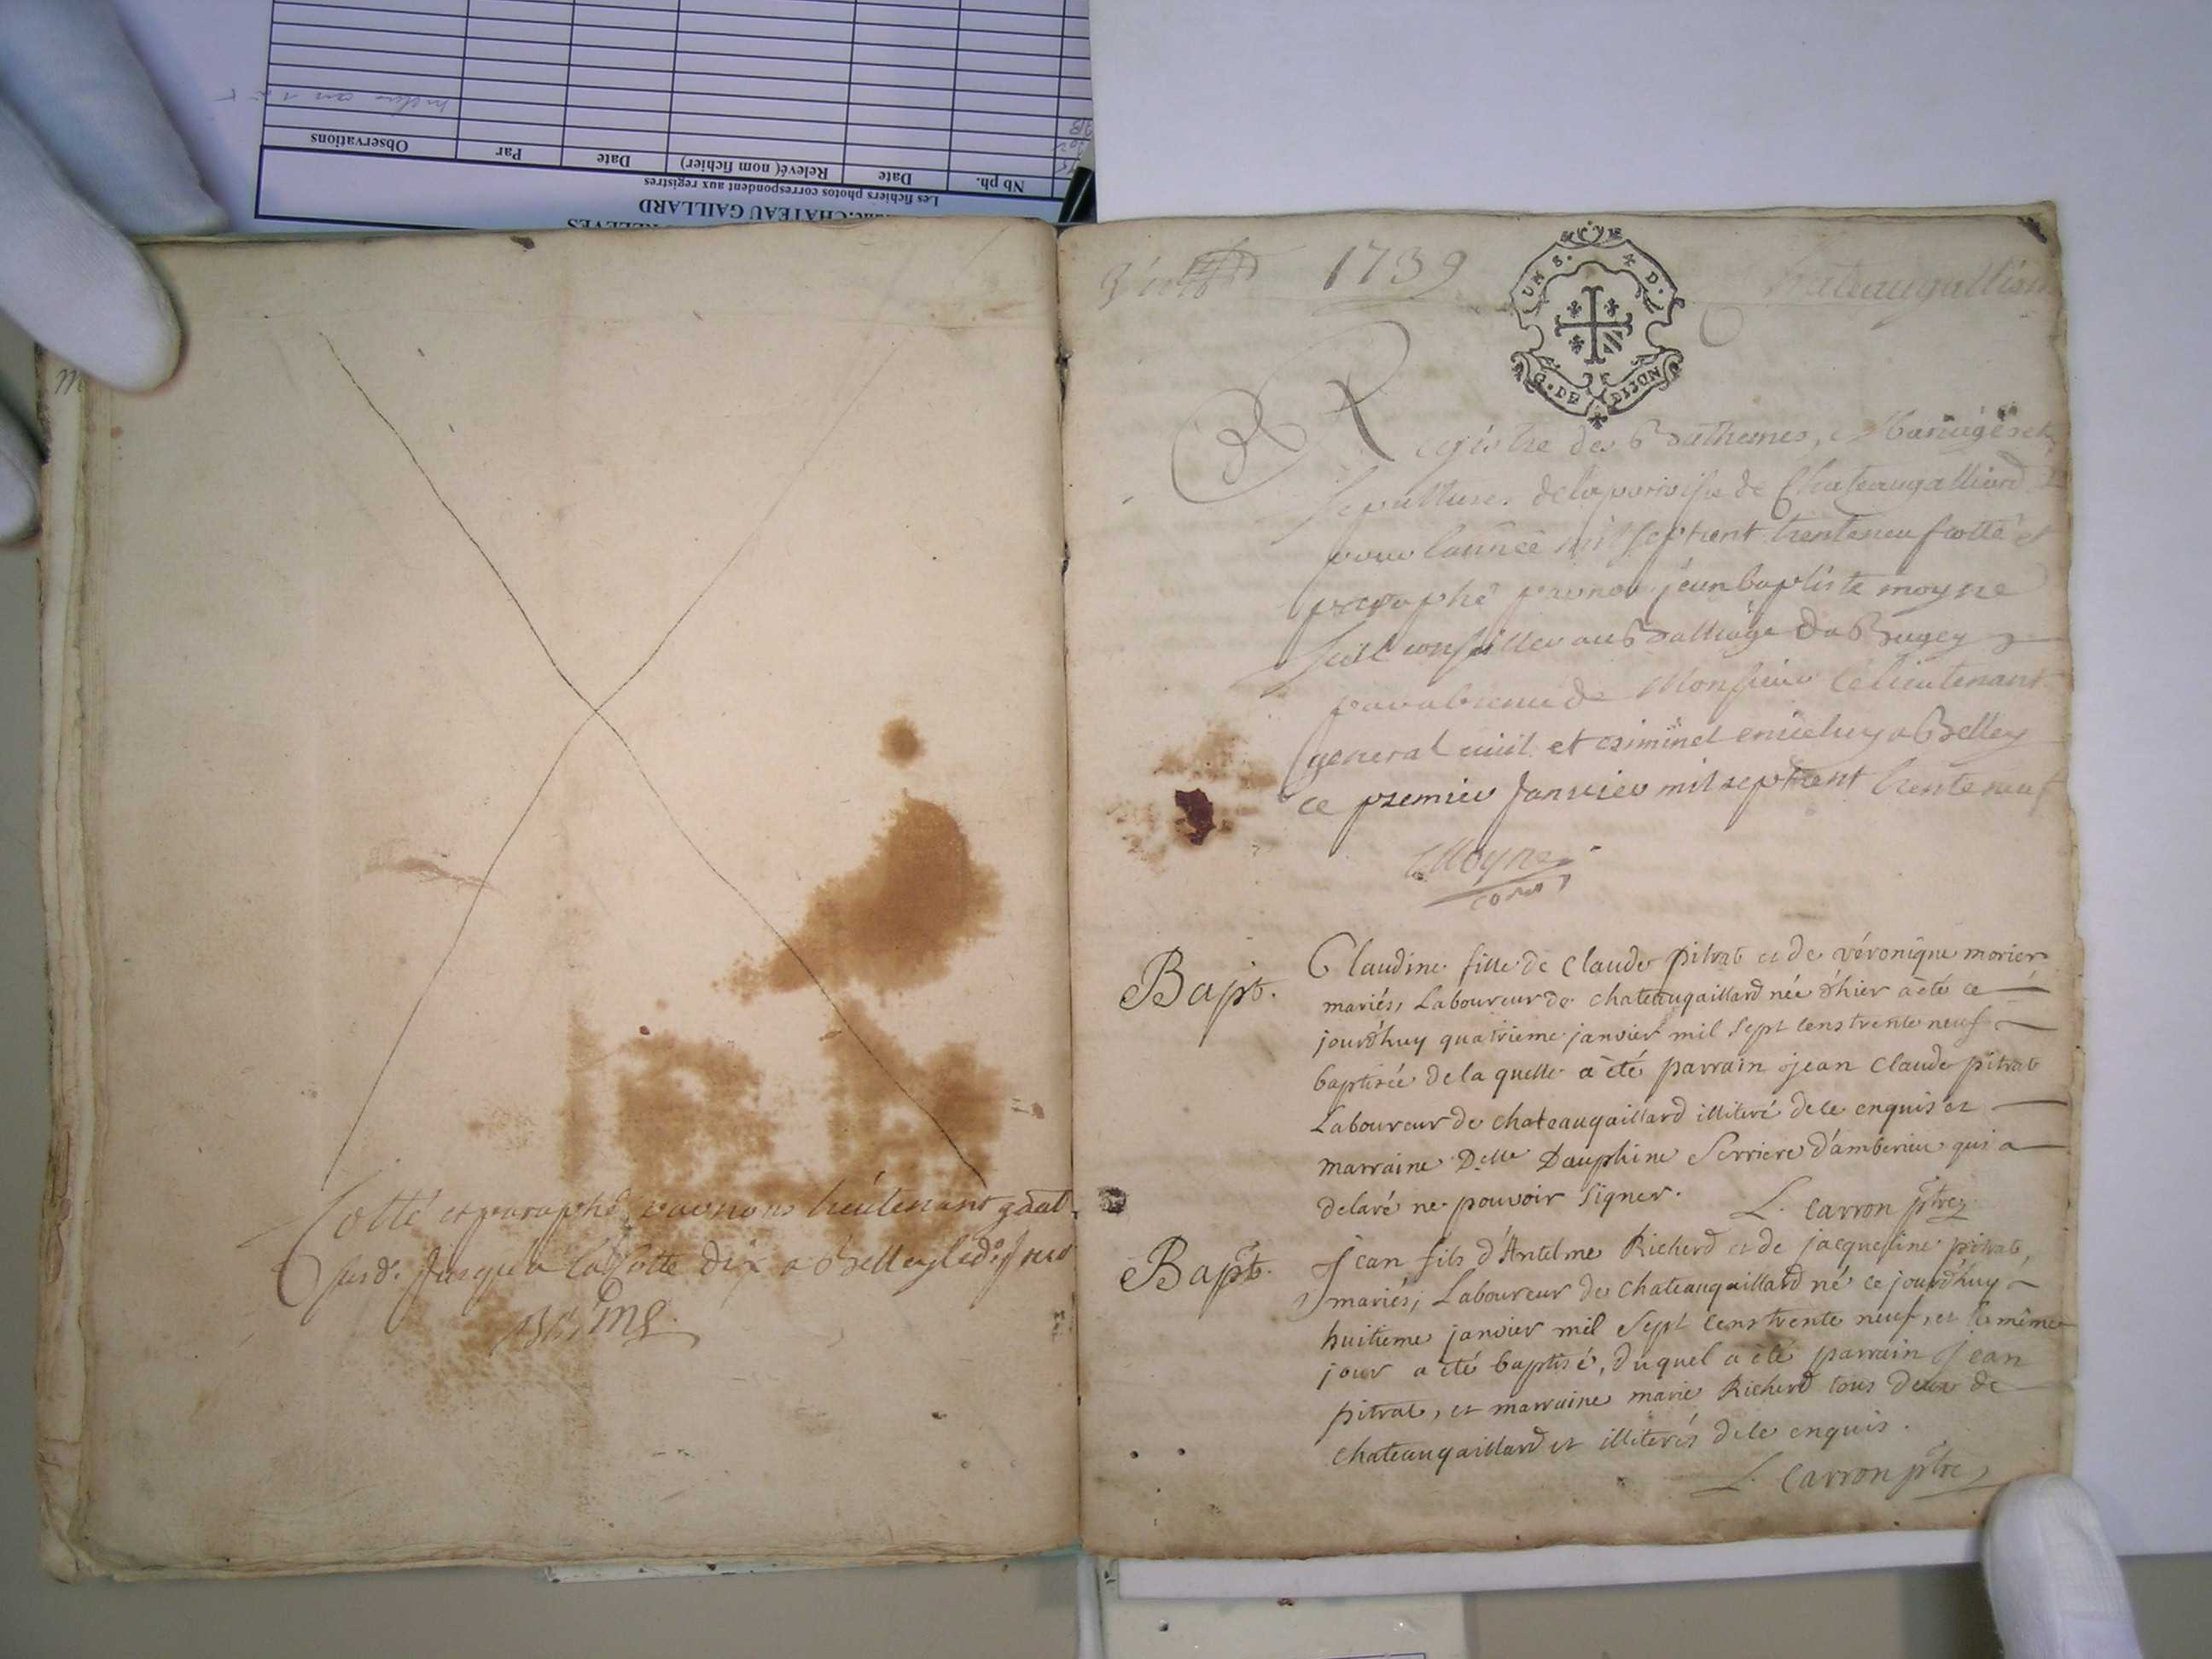 Observations
Par
Date
Relevé( nom fichier)
Date
Nb ph.
Les fichiers photos correspondent aux registres
CHATEAU GAILLARD
Cotté et paraphé par nous lieutenant gñal
susd. Jusqu'a la Cotte dix a Belley led.
1739
Chateaugalliard
UN S. 4 D.
G. DE DIJON
Registre des Bathemes, Mariages et
Sepultures de la paroisse de Chateaugalliard
pour lannée mil sept cent trente neuf cotté et
paraphé par nous jean baptiste moyne
seul conseiller au Balliage de Bugey
par absence de Monsieur le lieutenant
general civil et criminel en iceluy a Belley
ce premier Janvier mil sept cent trente neuf
Moyne
Bapt.
Claudine fille de Claude pitrat et de véronique morier
mariés, Laboureur de chateaugaillard née d'hier a été ce
jourd'huy quatrieme janvier mil sept cens trente neuf
baptisée de la quelle a été parrain jean Claude pitrat
Laboureur de chateaugaillard illiteré de ce enquis et
marraine Delle Dauphine Serriere d'amberieu qui a
delaré ne pouvoir signer. L. Carron ptre
Bapt.
Jean fils d'Antelme Richerd et de jacquesine pitrat,
mariés, Laboureur de Chateaugaillard né ce jourd'huy
huitieme janvier mil sept cens trente neuf, et le même
jour a été baptisé, duquel a été parrain Jean
pitrat, et marraine marie Richerd tous deux de
chateaugaillard et illiterés de ce enquis.
L. Carron ptre